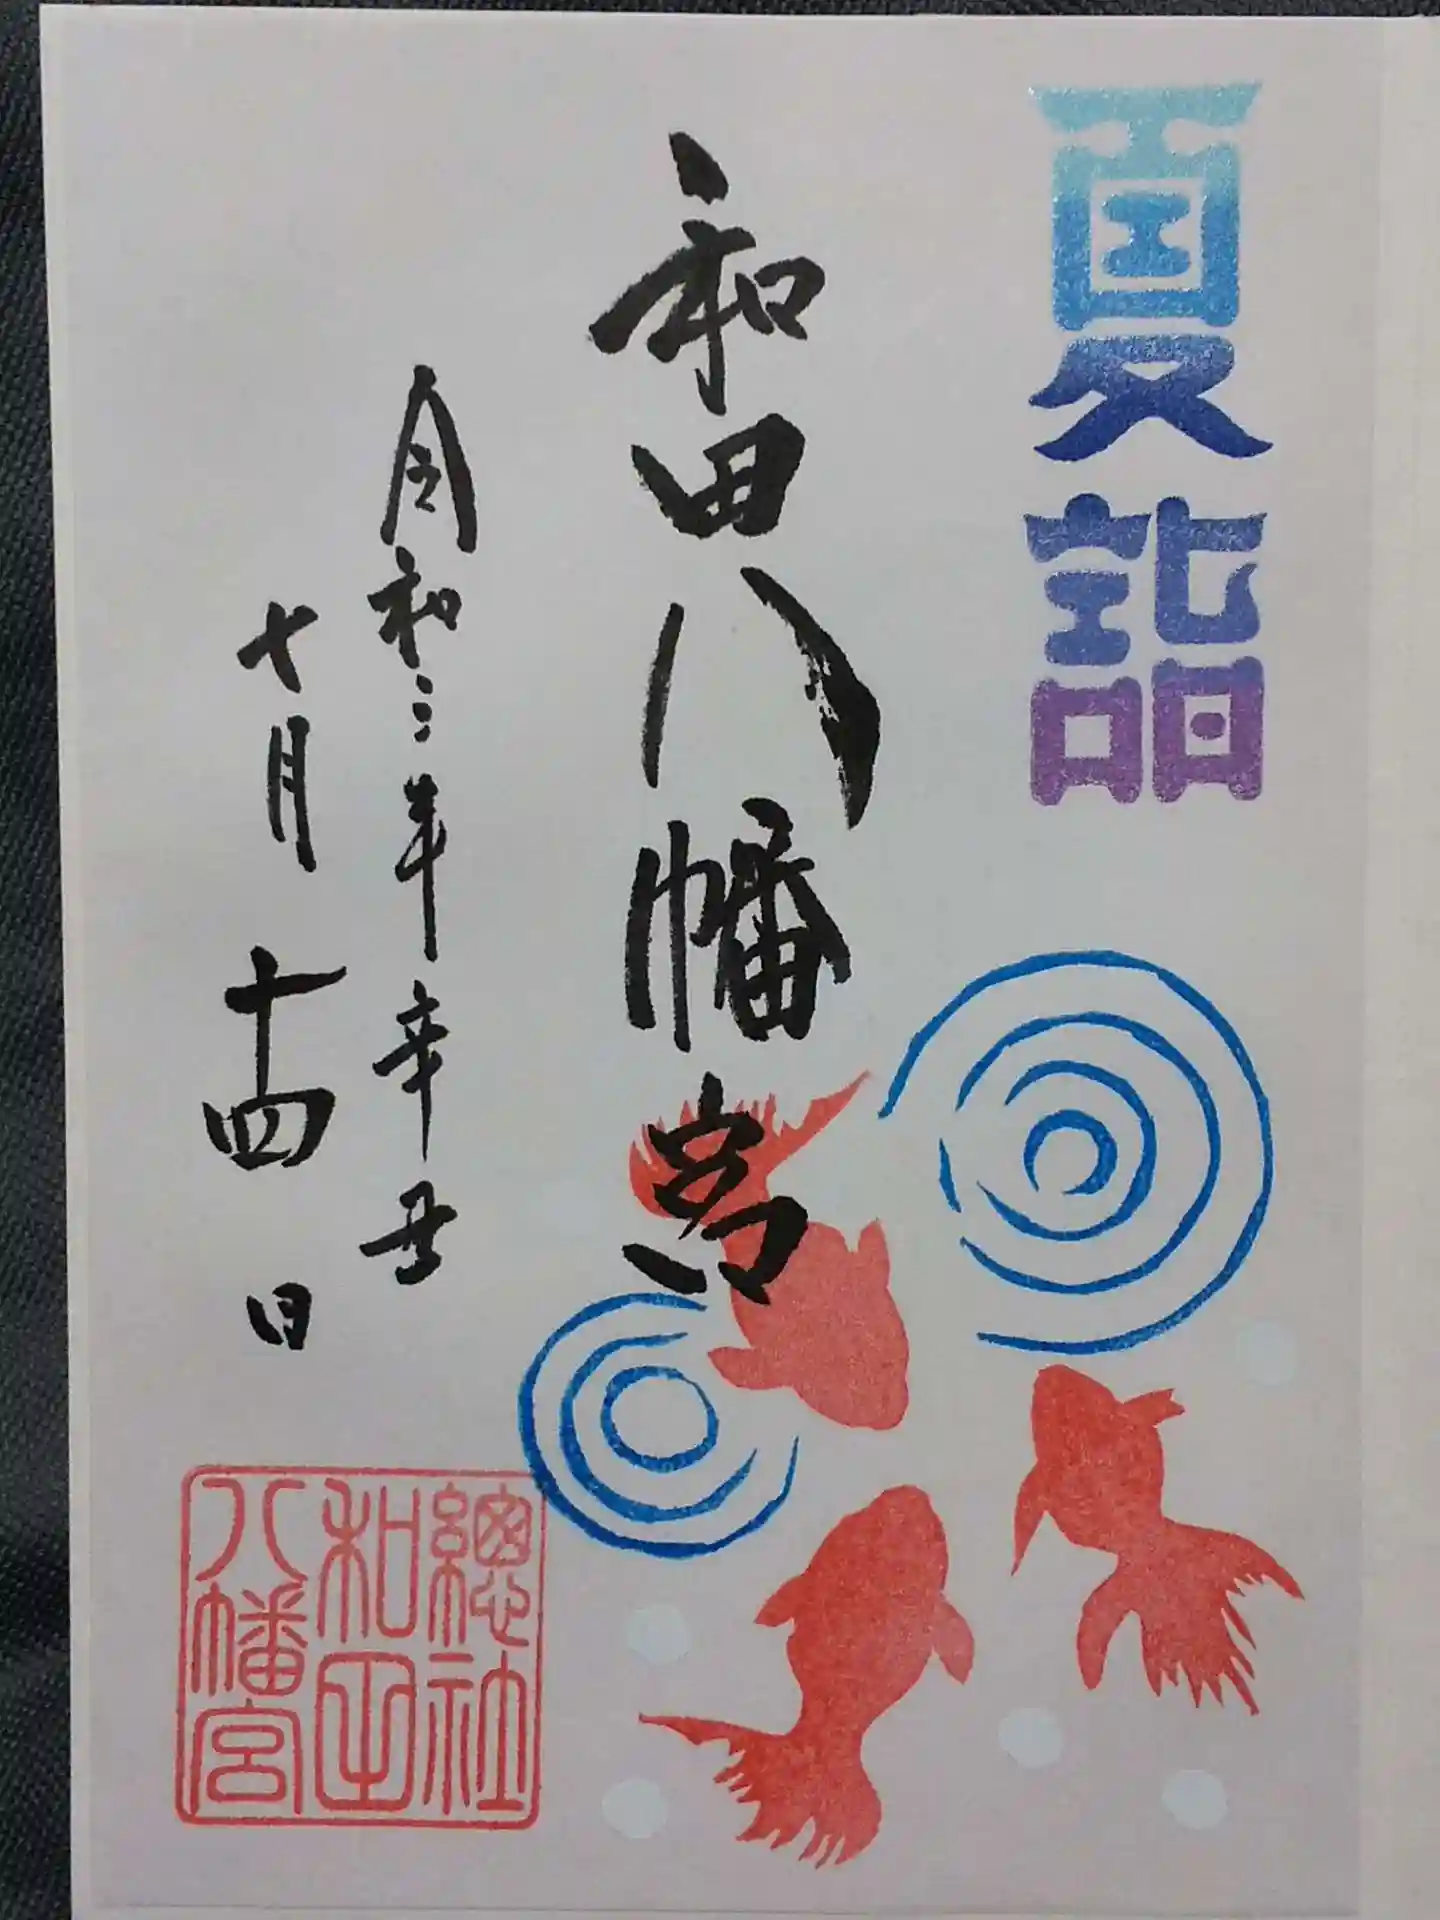 夏詣
和田八幡宮
令和三年辛丑
七月十四日
總社
和田
八幡宮